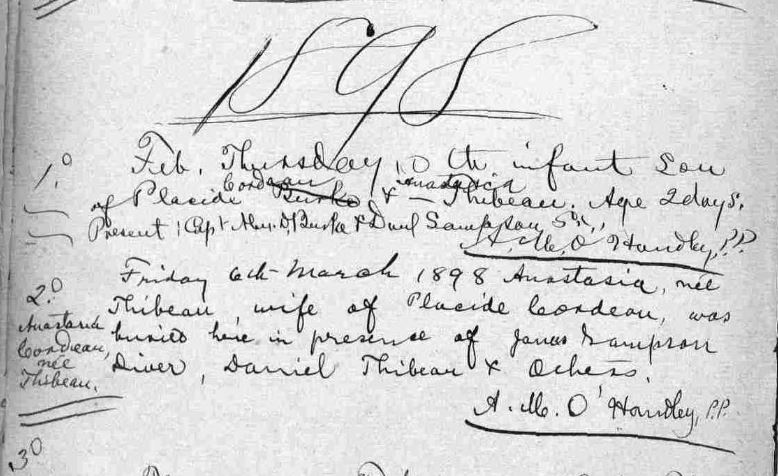 1898
1.º
Feb. Thursday 10th infant Son
Cordeau Anastasia
of Placide Burke & — Thibeau. Age 2 days.
Present: Capt Alex. D. Burke & Danl Sampson, Snr.,
A. M. O'Handley, P.P.
2.º
Friday 6th March 1898 Anastasia, née
Thibeau, wife of Placide Cordeau, was
buried here in presence of James Sampson
Diver, Daniel Thibeau & Others.
Anastasia
Cordeau,
née
Thibeau.
A. M. O'Handley, P.P.
3º